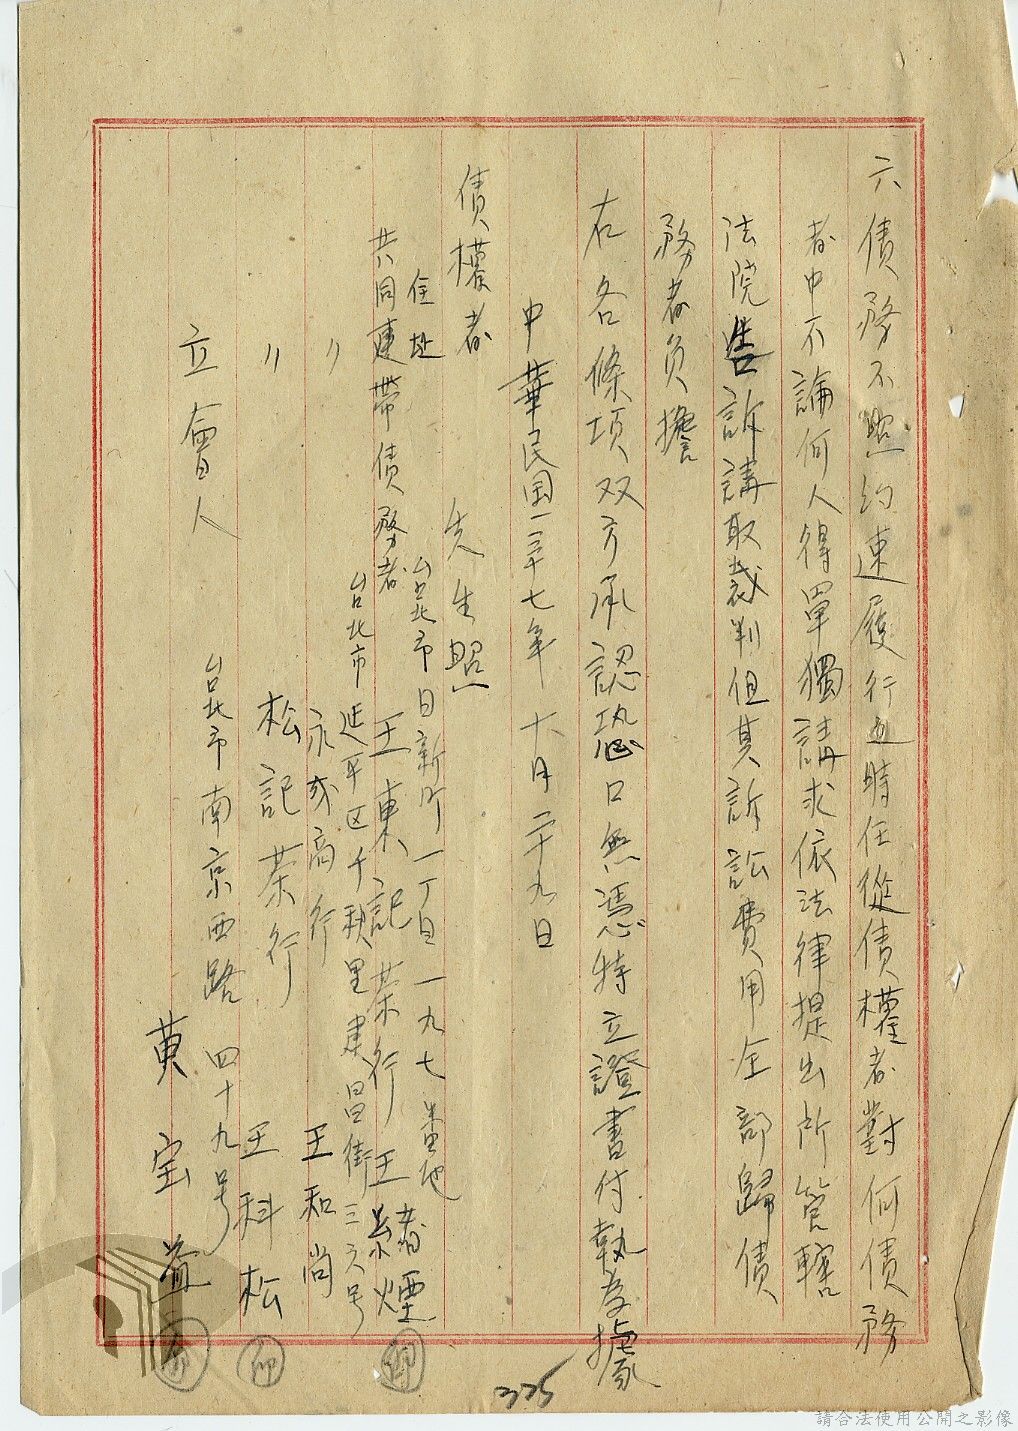 六債務不照約束履行之時任從債權者對何債務
者中不論何人得單獨請求依法律提出所管轄
法院告訴講取裁判但其訴訟費用全部歸債
務者負擔
右各條項双方承認恐口無憑特立證書付執為據
中華民国三十七年 六月二十九日
債權者 先生照
住址 台北市日新町一丁目一九七番地
共同連帶債務者 王東記茶行 王緒煙
台北市延平区千秋里建昌街三六号
〃 永成商行 王和尚
〃 松記茶行 王科松
台北市南京西路四十九号
立會人 黄宝益
印
印
225
請合法使用公開之影像